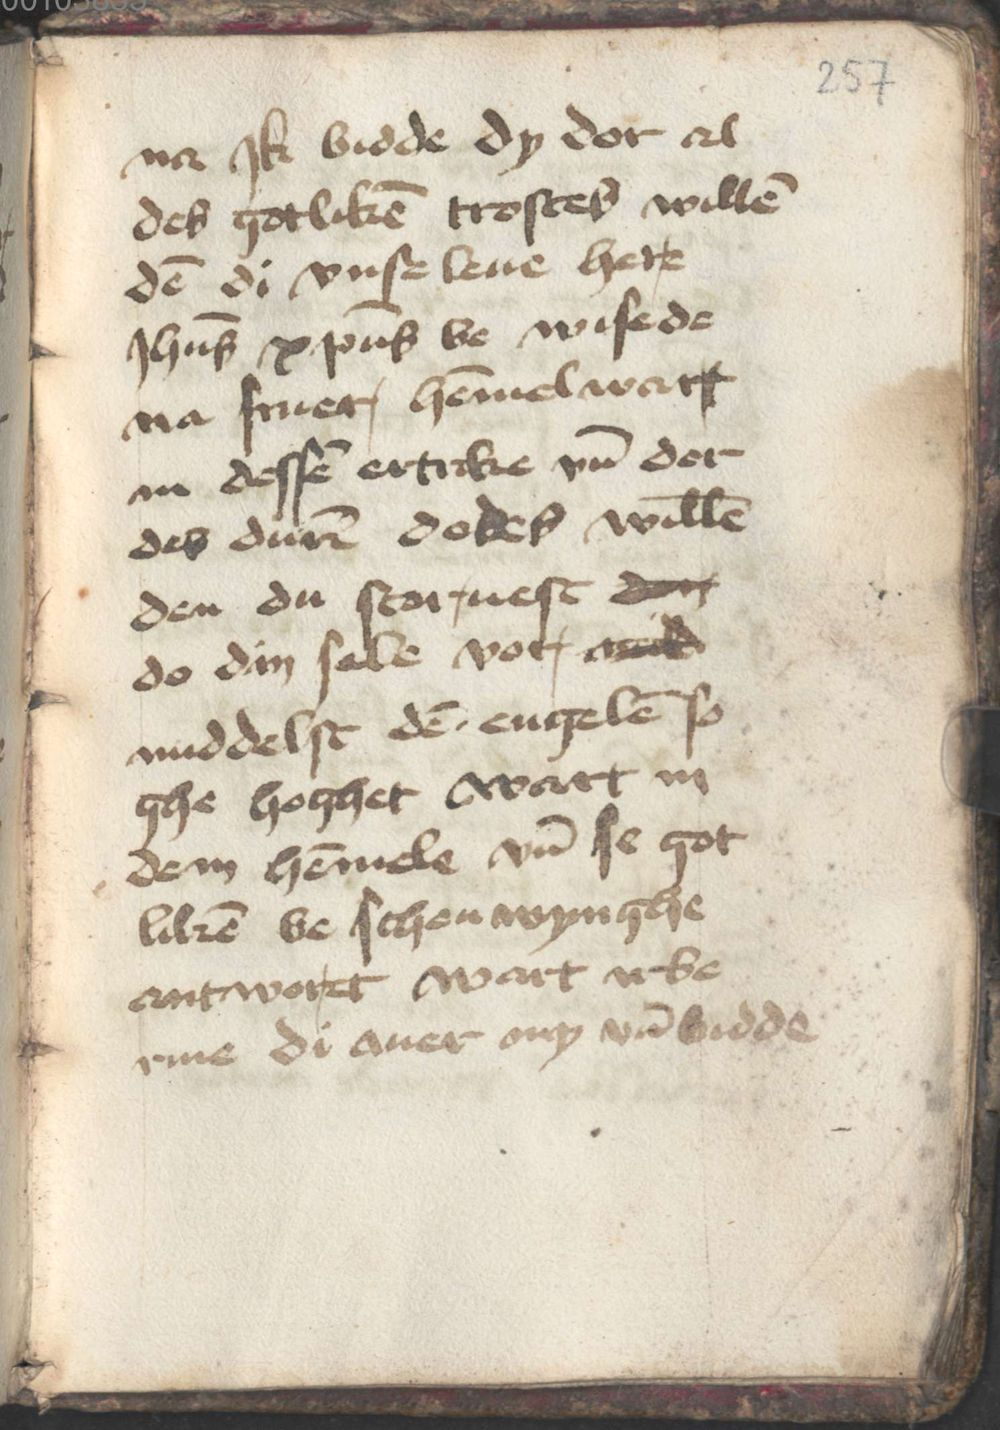 257
na Jk bidde dy dor al
des gotlikē trostes willē
dē di vnse leue here
Jhūs xpūs be wisede
na siner hēmelwart
in dessē ertrike vn̄ dor
des durē dodes willē
den du storuest
do din sele vor
middelst dē engelē so
ghe hoghet wart in
dem hēmele vn̄ se got
likē be schouwynghe
antworet wart
rme di auer my vn̄ bidde